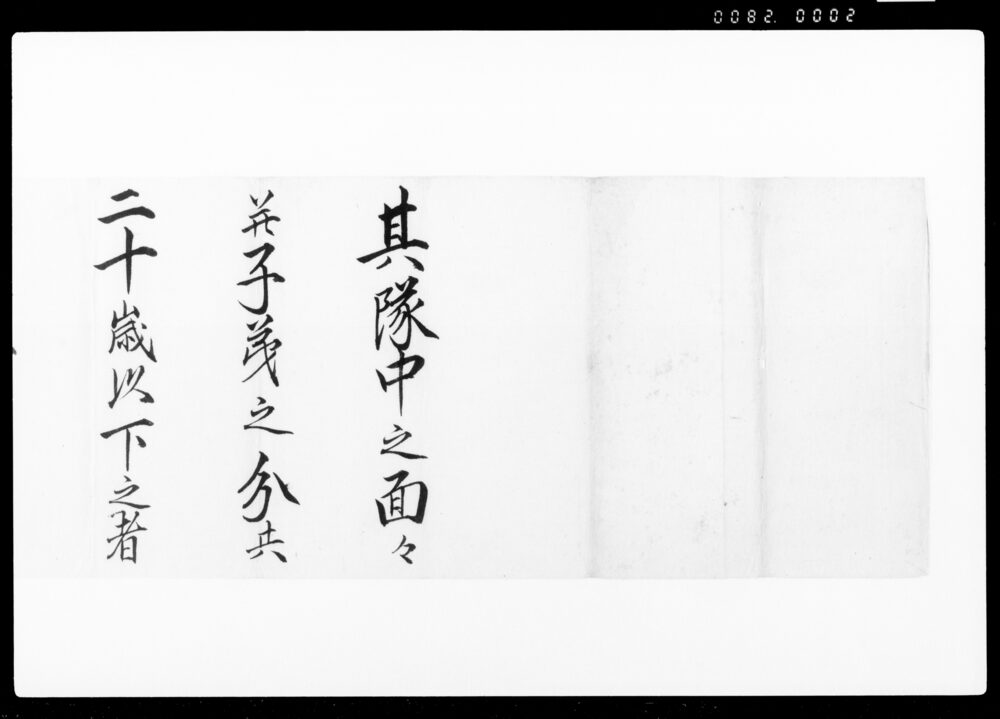 0082. 0002
其隊中之面々
并子弟之分共
二十歳以下之者